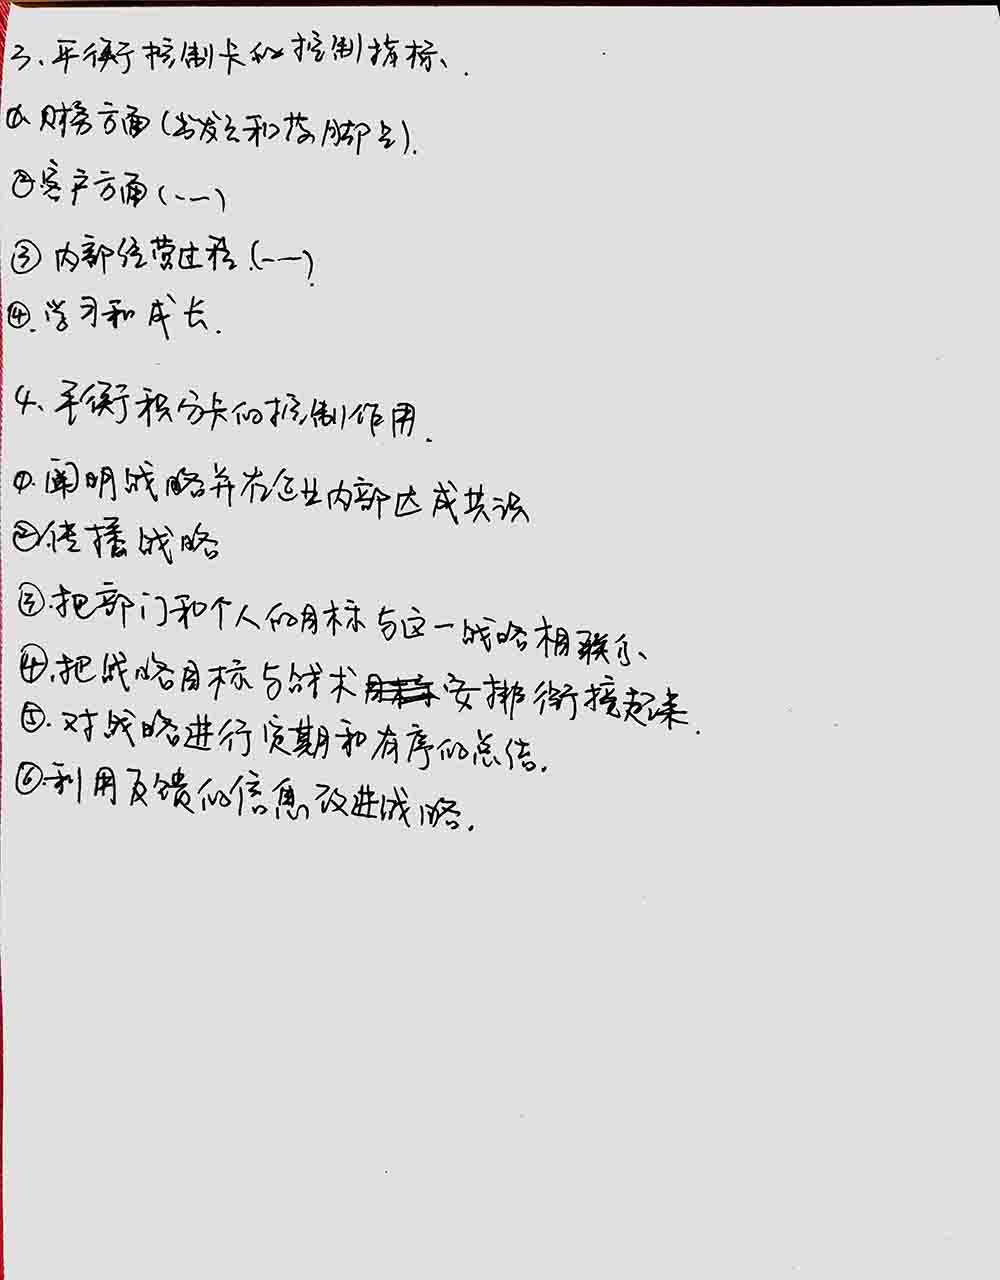 3、平衡控制卡的控制指标、.
①、财务方面(出发点和落脚点).
②客户方面(、一一)
③内部经营过程.(、一一).
④.学习和成长.
4、平衡积分卡的控制作用.
①.阐明战略并在企业内部达成共识
②.传播战略
③.把部门和个人的目标与这一战略相联系、
④.把战略目标与战术安排衔接起来.
⑤.对战略进行定期和有序的总结.
⑥.利用反馈的信息改进战略.